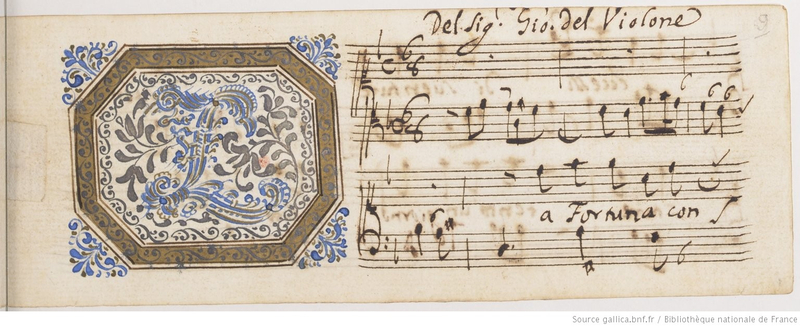 Del. sig.r Gio: del Violone
9
6
8
6
8
6
6
6
L
a Fortuna con
6
6
Source gallica.bnf.fr / Bibliothèque nationale de France